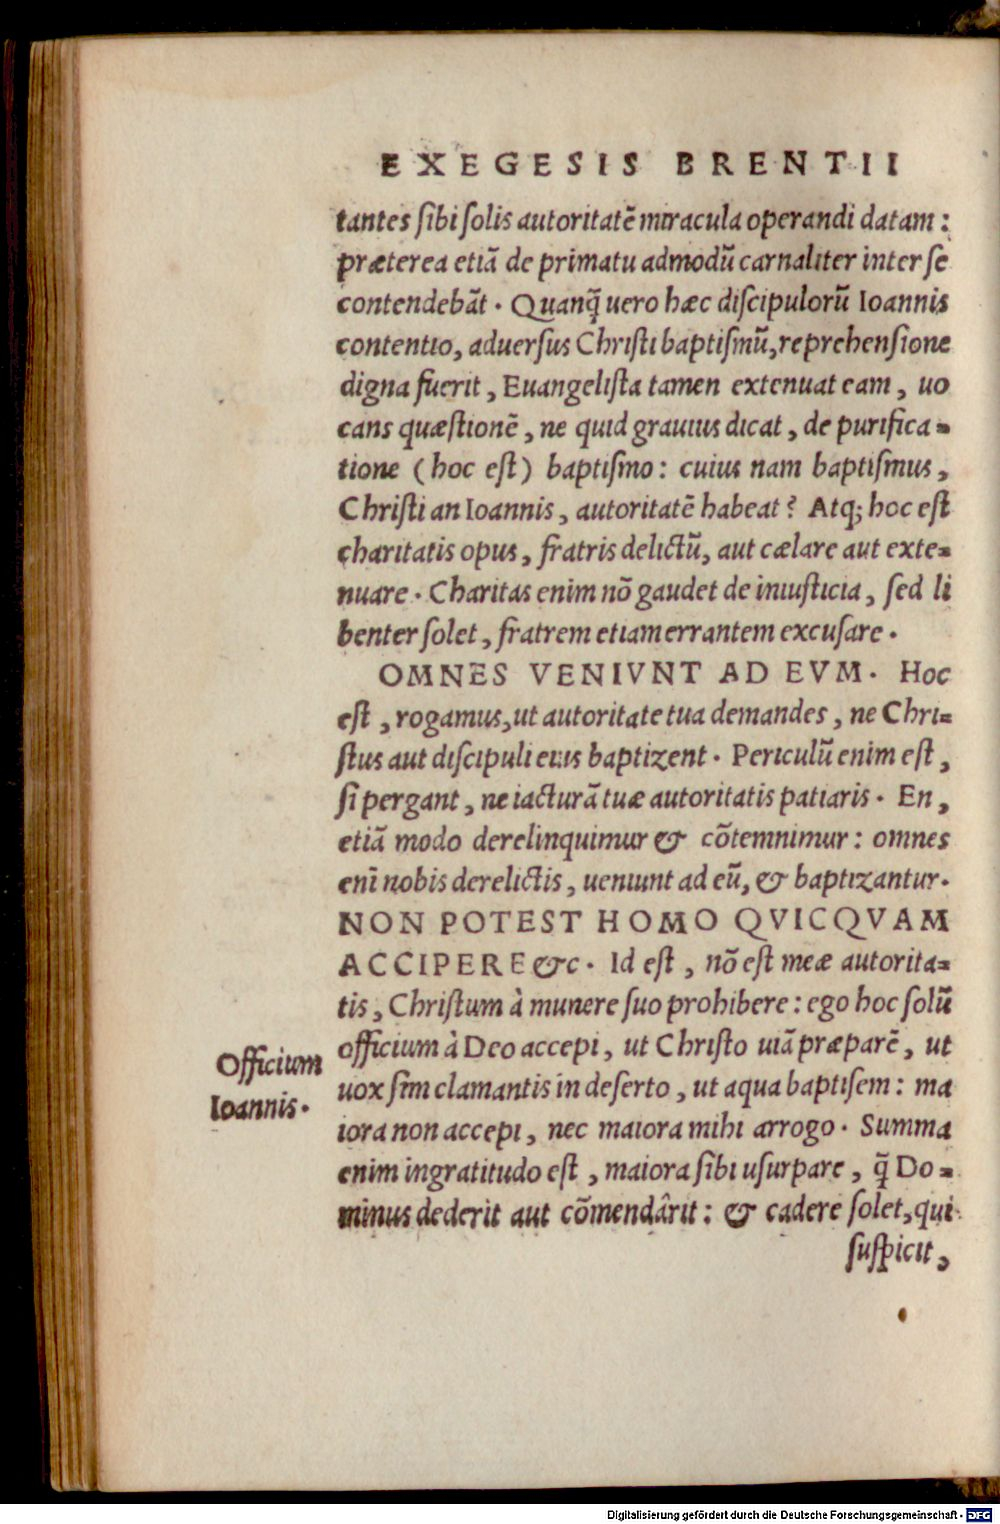 EXEGESIS BRENTII
tantes ſibi ſolis autoritatē miracula operandi datam:
præterea etiā de primatu admodū carnaliter inter ſe
contendebāt. Quanq̄ uero hæc diſcipulorū Ioannis
contentio, aduerſus Chriſti baptiſmū, reprehenſione
digna fuerit, Euangeliſta tamen extenuat eam, uo
cans quæſtionē, ne quid grauius dicat, de purifica-
tione (hoc eſt) baptiſmo: cuius nam baptiſmus,
Chriſti an Ioannis, autoritatē habeat? Atq; hoc eſt
charitatis opus, fratris delictū, aut cælare aut exte-
nuare. Charitas enim nō gaudet de iniuſticia, ſed li
benter ſolet, fratrem etiam errantem excuſare.
OMNES VENIVNT AD EVM. Hoc
eſt, rogamus, ut autoritate tua demandes, ne Chri-
ſtus aut diſcipuli eius baptizent. Periculū enim eſt,
ſi pergant, ne iacturā tuæ autoritatis patiaris. En,
etiā modo derelinquimur & cōtemnimur: omnes
enī nobis derelictis, ueniunt ad eū, & baptizantur.
NON POTEST HOMO QVICQVAM
ACCIPERE &c. Id eſt, nō eſt meæ autorita-
tis, Chriſtum à munere ſuo prohibere: ego hoc ſolū
officium à Deo accepi, ut Chriſto uiā præparē, ut
uox ſim clamantis in deſerto, ut aqua baptiſem: ma
iora non accepi, nec maiora mihi arrogo. Summa
enim ingratitudo eſt, maiora ſibi uſurpare, q̄ Do-
minus dederit aut cōmendârit: & cadere ſolet, qui
ſuſpicit,
Officium
Ioannis.
Digitalisierung gefördert durch die Deutsche Forschungsgemeinschaft - DFG